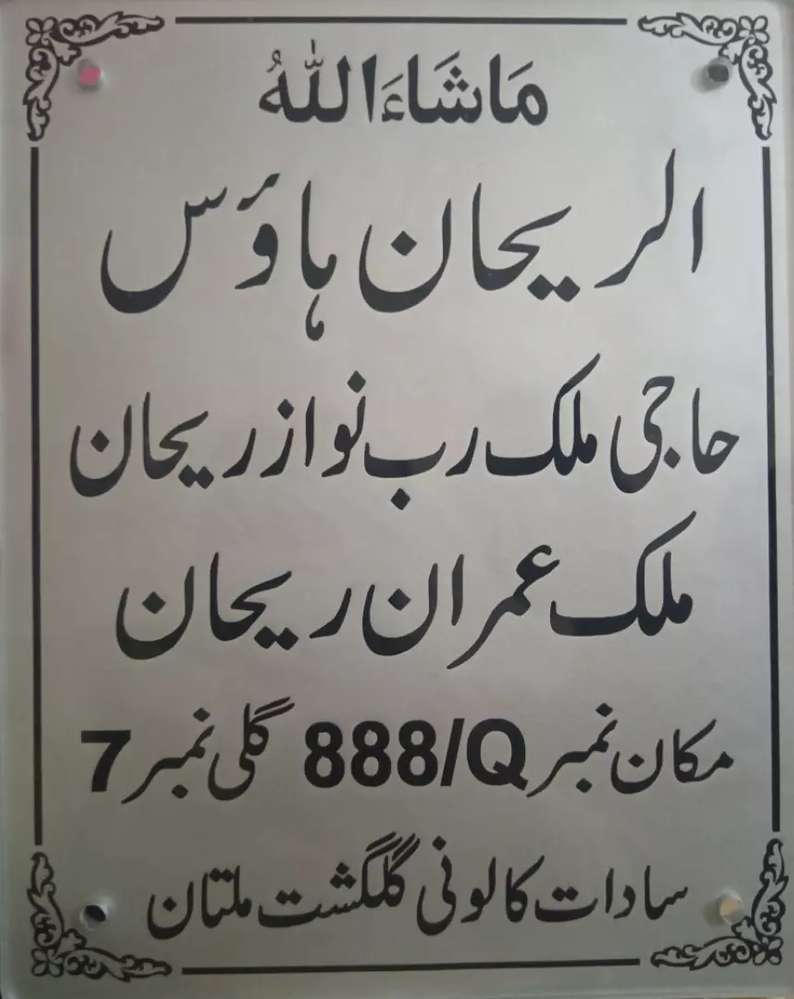 مَاشَاءَاللّٰهُ
الریحان ہاؤس
حاجی ملک رب نواز ریحان
ملک عمران ریحان
مکان نمبر 888/Q گلی نمبر 7
سادات کالونی گلگشت ملتان